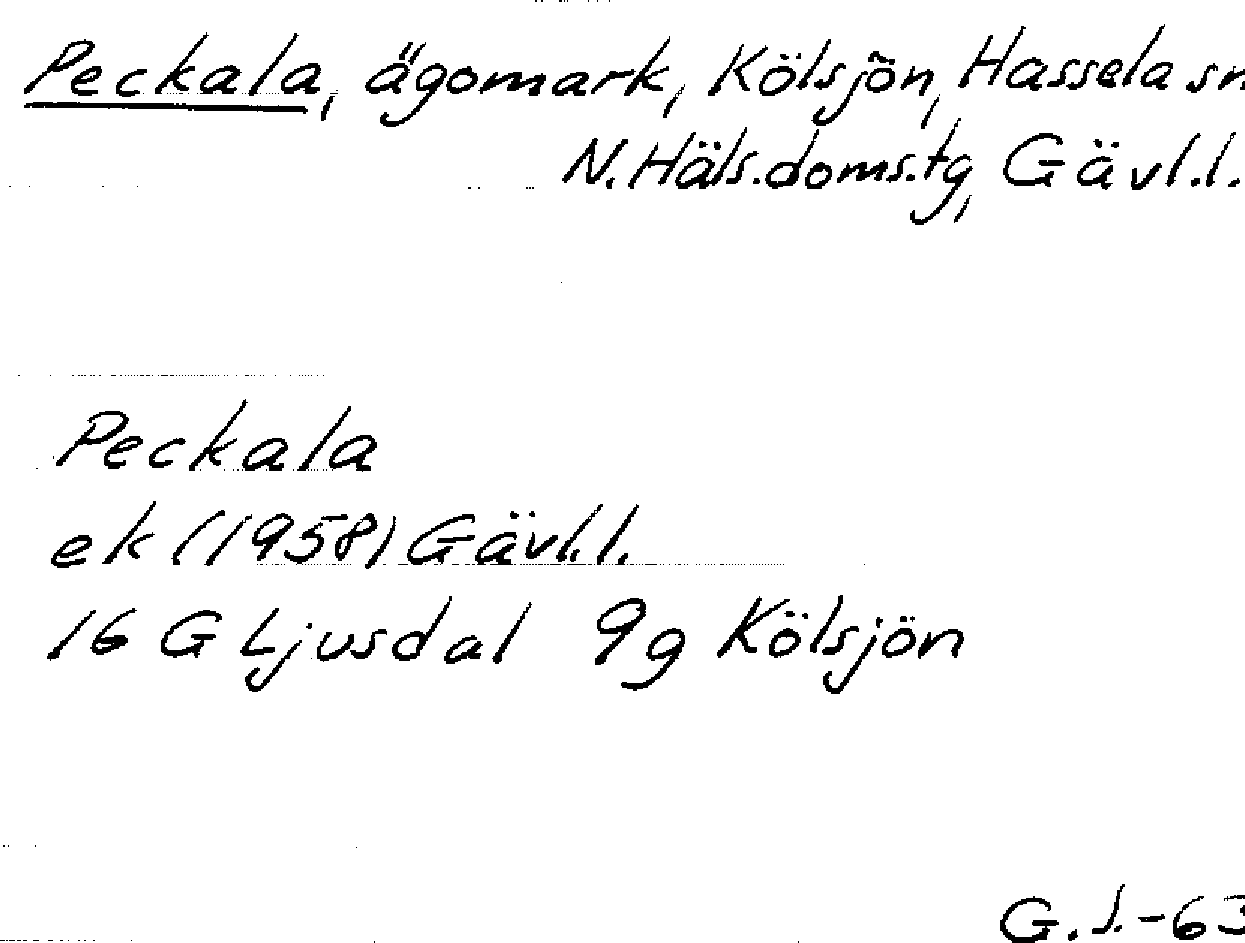 Peckala, ägomark, Kölsjön, Hassela sn
N.Häls.doms.tg, Gävl.l.
Peckala
ek (1958) Gävl.l.
16 G Ljusdal 9g Kölsjön
G.J.-63